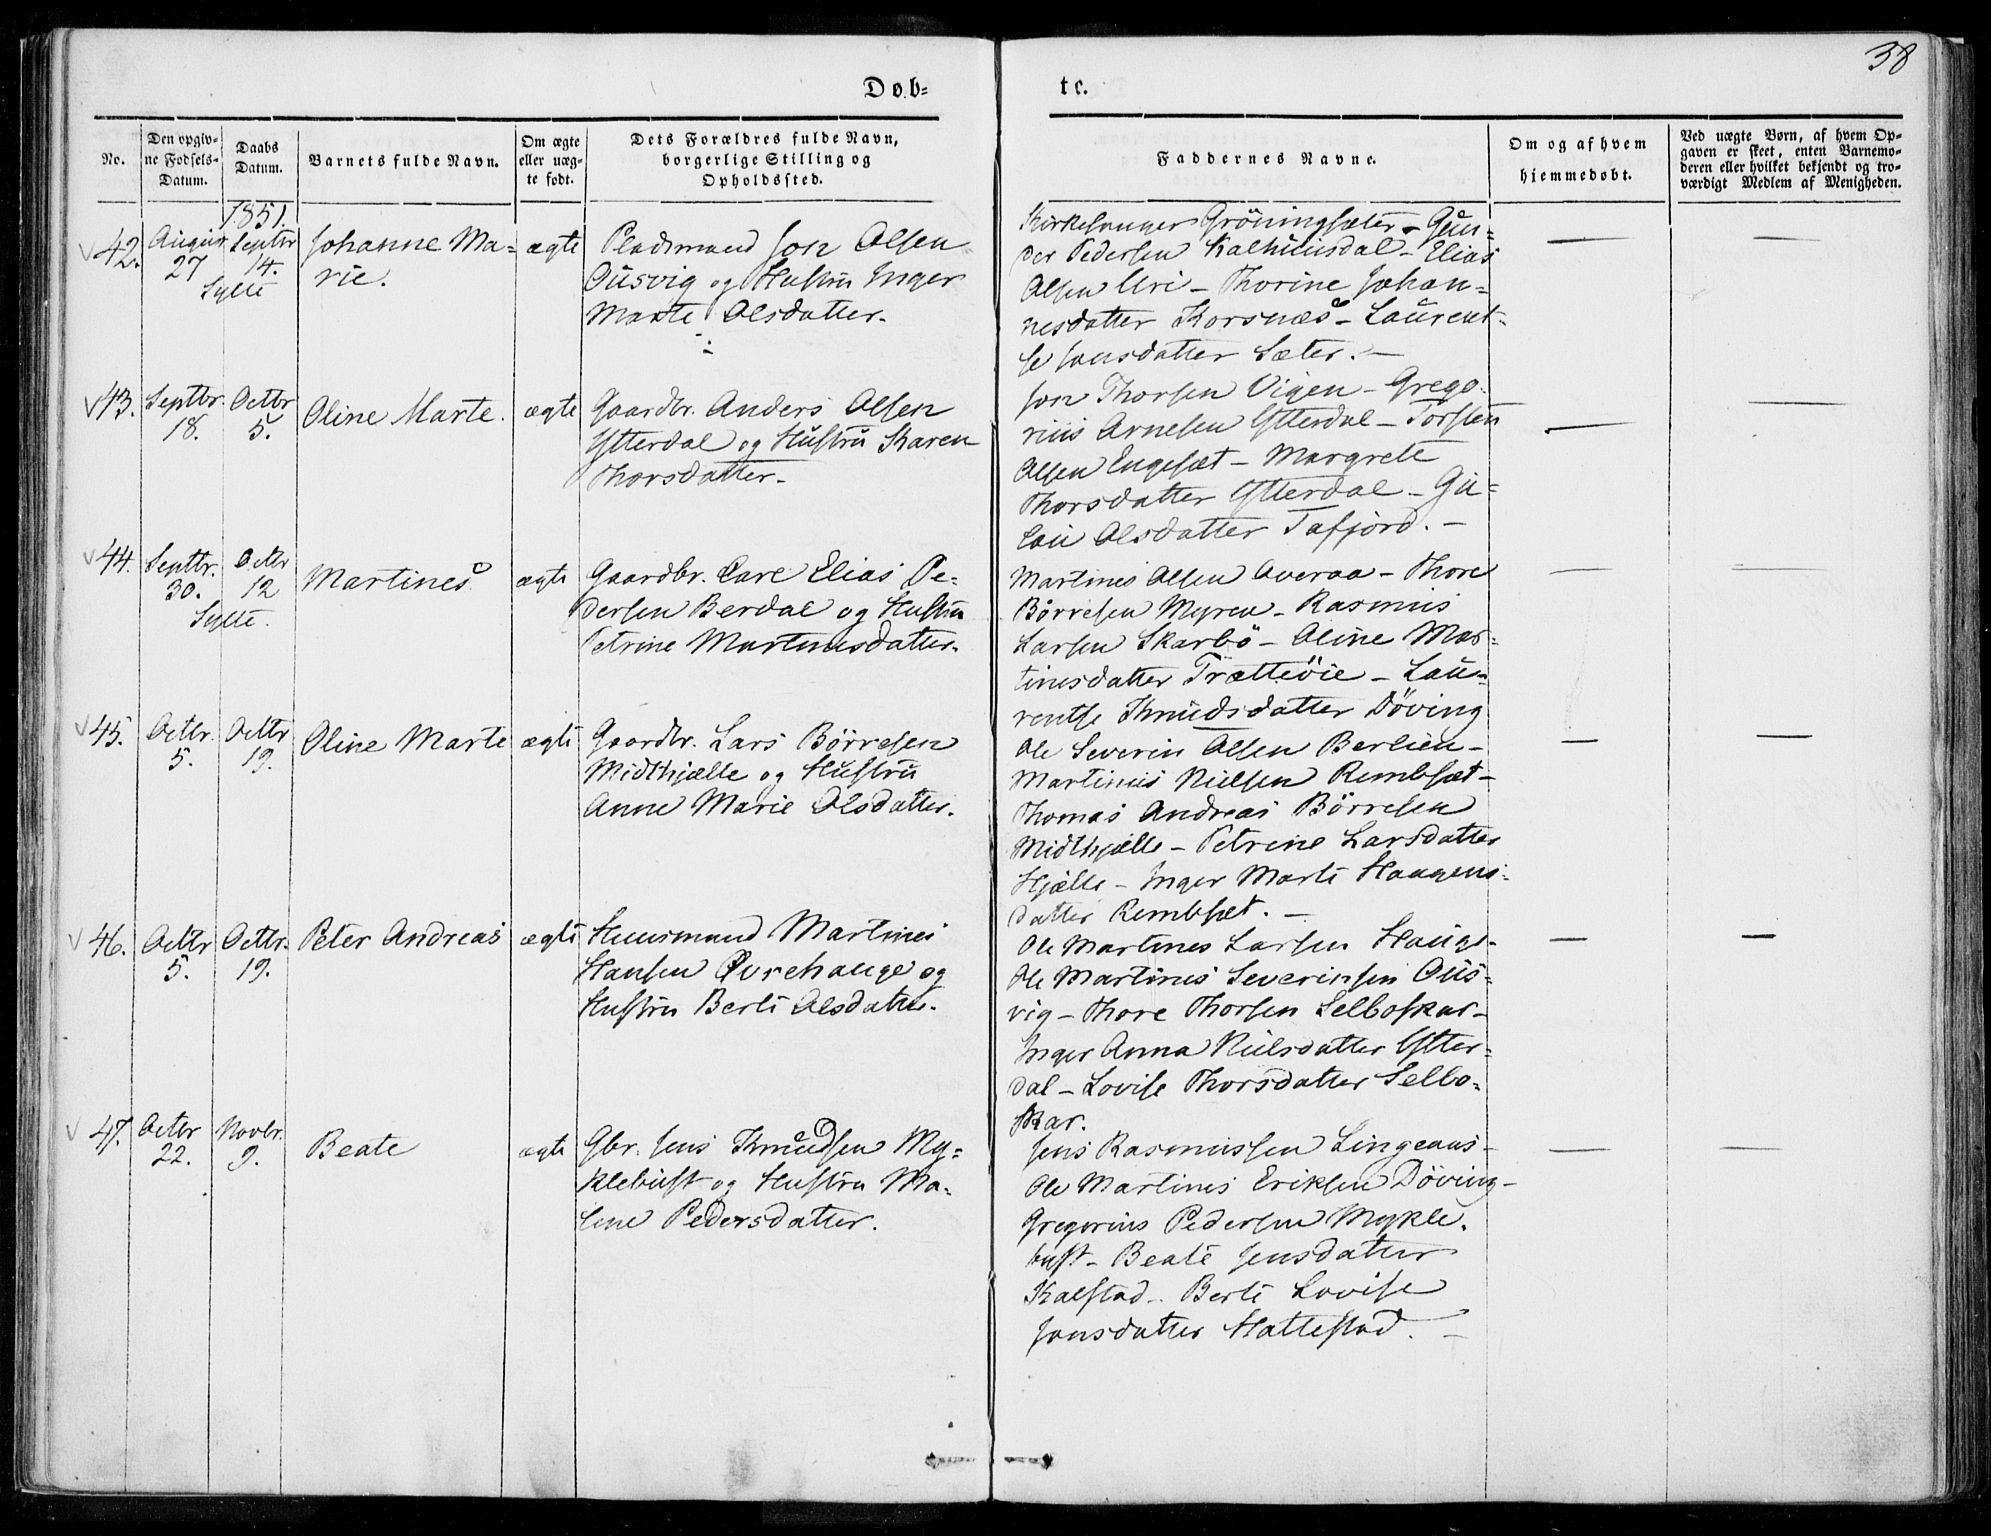 38
Døb-
te.
No.
Den opgiv-
ne Fødsels-
Datum.
Daabs
Datum.
Barnets fulde Navn.
Om ægte
eller uæg-
te født.
Dets Forældres fulde Navn,
borgerlige Stilling og
Opholdssted.
Faddernes Navne.
Om og af hvem
hjemmedøbt.
Ved uægte Børn, af hvem Op-
gaven er skeet, enten Barnemo-
deren eller hvilket bekjendt og tro-
værdigt Medlem af Menigheden.
1851.
42.
August
27
Septbr
14.
Sylte
Johanne Ma-
rie.
ægte
Pladsmand Jon Olsen
Ousvig og Hustru Inger
Marte Olsdatter.
Kirkesanger Gröningsæter - Gun-
der Pedersen Kalhuusdal - Elias
Olsen Uri - Thorine Johan-
nesdatter Korsnæs - Laurent-
se Jonsdatter Sæter. -
43.
Septbr.
18.
Octbr
5.
Oline Marte.
ægte
Gaardbr. Anders Olsen
Ytterdal og Hustru Karen
Thorsdatter.
Jon Thorsen Vigen - Grego-
rius Arnesen Ytterdal - Torsten
Olsen Engeset - Margrete
Thorsdatter Ytterdal - Gu-
lou Olsdatter Tafjord. -
44.
Septbr.
30.
Octbr
12
Sylte.
Martinus
ægte
Gaardbr. Carl Elias Pe-
dersen Berdal og Hustru
Petrine Martinusdatter.
Martinus Olsen Overaa - Thore
Börresen Myren - Rasmus
Larsen Skarbö - Oline Mar-
tinusdatter Trætteöie - Lau-
rentse Knudsdatter Döving
45.
Octbr.
5.
Octbr
19.
Oline Marte
ægte
Gaardbr. Lars Börresen
Midthjælle og Hustru
Anne Marie Olsdatter.
Ole Severin Olsen Berlien -
Martinus Nielsen Rembset -
Thomas Andreas Börresen
Midthjælle - Petrine Larsdatter
Hjælle - Inger Marte Haagens-
datter Rembset. -
46.
Octbr
5.
Octbr.
19.
Peter Andreas
ægte
Huusmand Martinus
Hansen Øvrehauge og
Hustru Berte Olsdatter.
Ole Martinus Larsen Hauge -
Ole Martinus Severinsen Ous-
vig - Thore Thorsen Selboskar -
Inger Anna Nielsdatter Ytter-
dal - Lovise Thorsdatter Selbo-
skar.
47.
Octbr
22.
Novbr.
9.
Beate
ægte
Gbr. Jens Knudsen My-
klebust og Hustru Ma-
lene Pedersdatter.
Jens Rasmussen Lingeaas -
Ole Martinus Eriksen Döving -
Gregorius Pedersen Mykle-
bust - Beate Jensdatter
Kalstad - Berte Lovise
Jonsdatter Hattestad. -